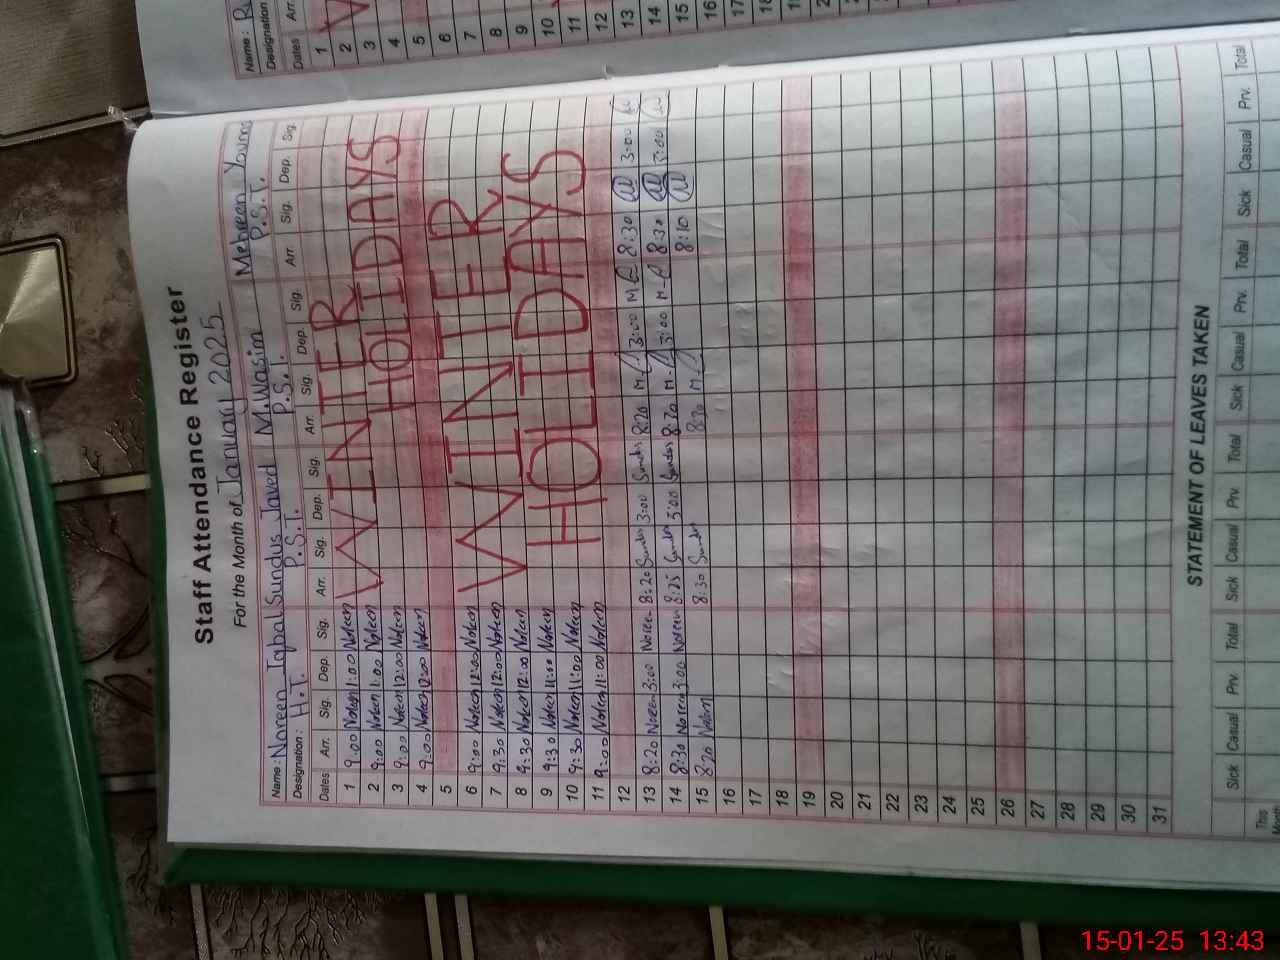 Staff Attendance Register
For the Month of January 2025
Name: Noreen Iqbal Sundus Javed M.Wasim Mehreen Younas
Designation: H.T. P.S.T. P.S.T. P.S.T.
Dates Arr. Sig. Dep. Sig. Arr. Sig. Dep. Sig. Arr. Sig. Dep. Sig. Arr Sig. Dep. Sig.
1 9:00 Noreen 1:00 Noreen WINTER
2 9:00 Noreen 1:00 Noreen HOLIDAYS
3 9:00 Noreen 12:00 Noreen
4 9:00 Noreen 12:00 Noreen
5
6 9:00 Noreen 12:00 Noreen WINTER
7 9:30 Noreen 12:00 Noreen
8 9:30 Noreen 12:00 Noreen HOLIDAYS
9 9:30 Noreen 11:00 Noreen
10 9:30 Noreen 11:00 Noreen
11 9:00 Noreen 11:00 Noreen
12
13 8:20 Noreen 3:00 Noreen 8:20 Sundus 3:00 Sundus 8:20 3:00 8:30 3:00
14 8:30 Noreen 3:00 Noreen 8:25 Sundus 3:00 Sundus 8:30 3:00 8:30 3:00
15 8:20 Noreen 8:30 Sundus 8:30 8:10
16
17
18
19
20
21
22
23
24
25
26
27
28
29
30
31
STATEMENT OF LEAVES TAKEN
Sick Casual Prv. Total Sick Casual Prv. Total Sick Casual Prv. Total Sick Casual Prv. Total
This
Name:
Designation
Dates Arr.
1
2
3
4
5
6
7
8
9
10
11
12
13
14
15
16
17
18
15-01-25 13:43